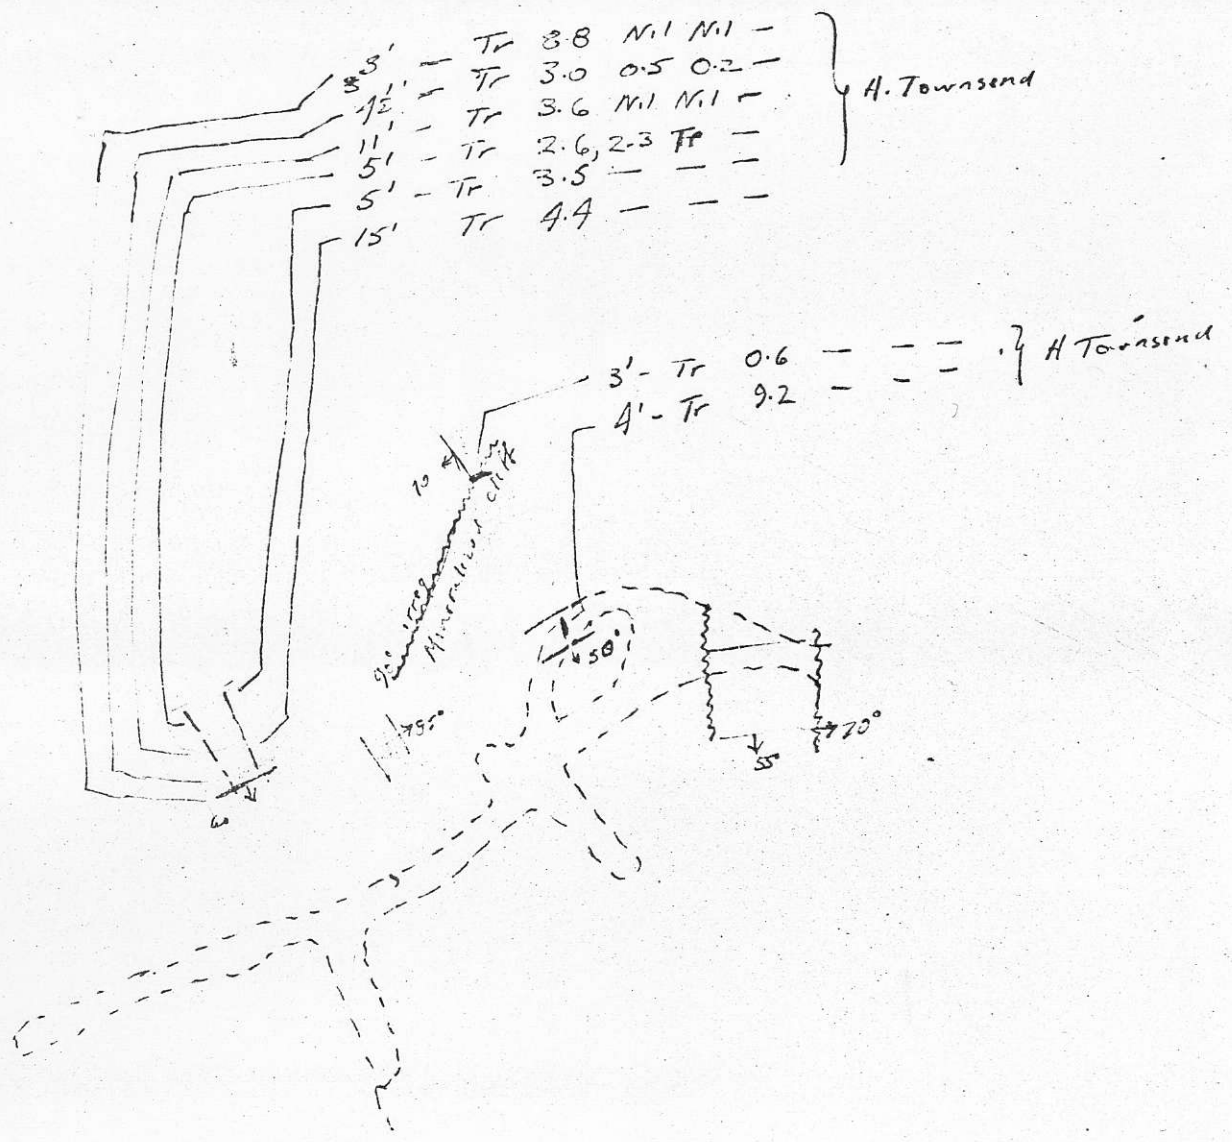 3' - Tr 8.8 Nil Nil -
4½' - Tr 3.0 0.5 0.2 -
11' - Tr 3.6 Nil Nil -
5' - Tr 2.6, 2.3 Tr -
5' - Tr 3.5 - - -
15' Tr 4.4 - - -
H. Townsend
3' - Tr 0.6 - - -
4' - Tr 9.2 - - -
H Townsend
70
Mineralized cliff
50°
70°
55
60